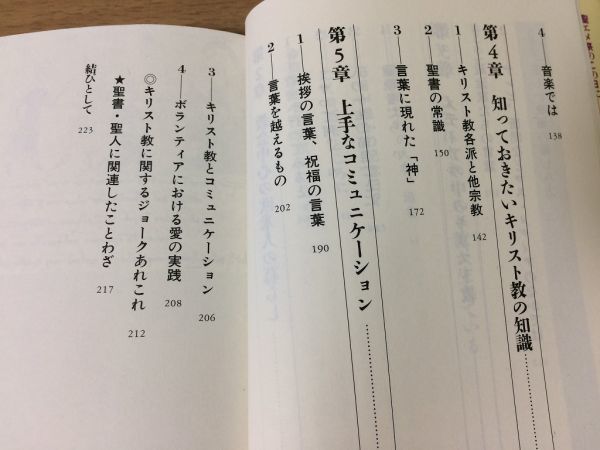 4——音楽では 138
第4章 知っておきたいキリスト教の知識
1——キリスト教各派と他宗教 142
2——聖書の常識 150
3——言葉に現れた「神」 172
第5章 上手なコミュニケーション
1——挨拶の言葉、祝福の言葉 190
2——言葉を越えるもの 202
3——キリスト教とコミュニケーション 206
4——ボランティアにおける愛の実践 208
◎キリスト教に関するジョークあれこれ 212
★聖書・聖人に関連したことわざ 217
結びとして 223